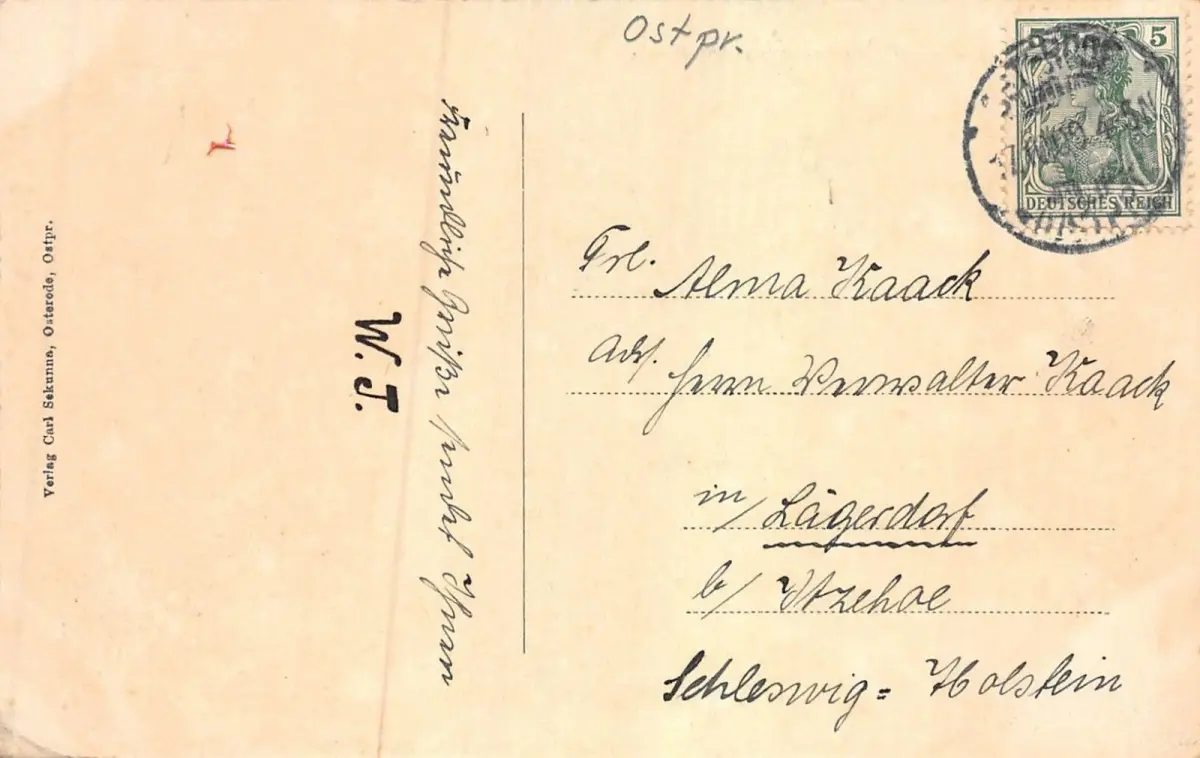 Ostpr.
5
DEUTSCHES REICH
Verlag Carl Sekunna, Osterode, Ostpr.
Freundliche Grüße sendet Ihnen
W. J.
Frl. Alma Kaack
Adr. Herrn Verwalter Kaack
in/ Lägerdorf
b/ Itzehoe
Schleswig= Holstein